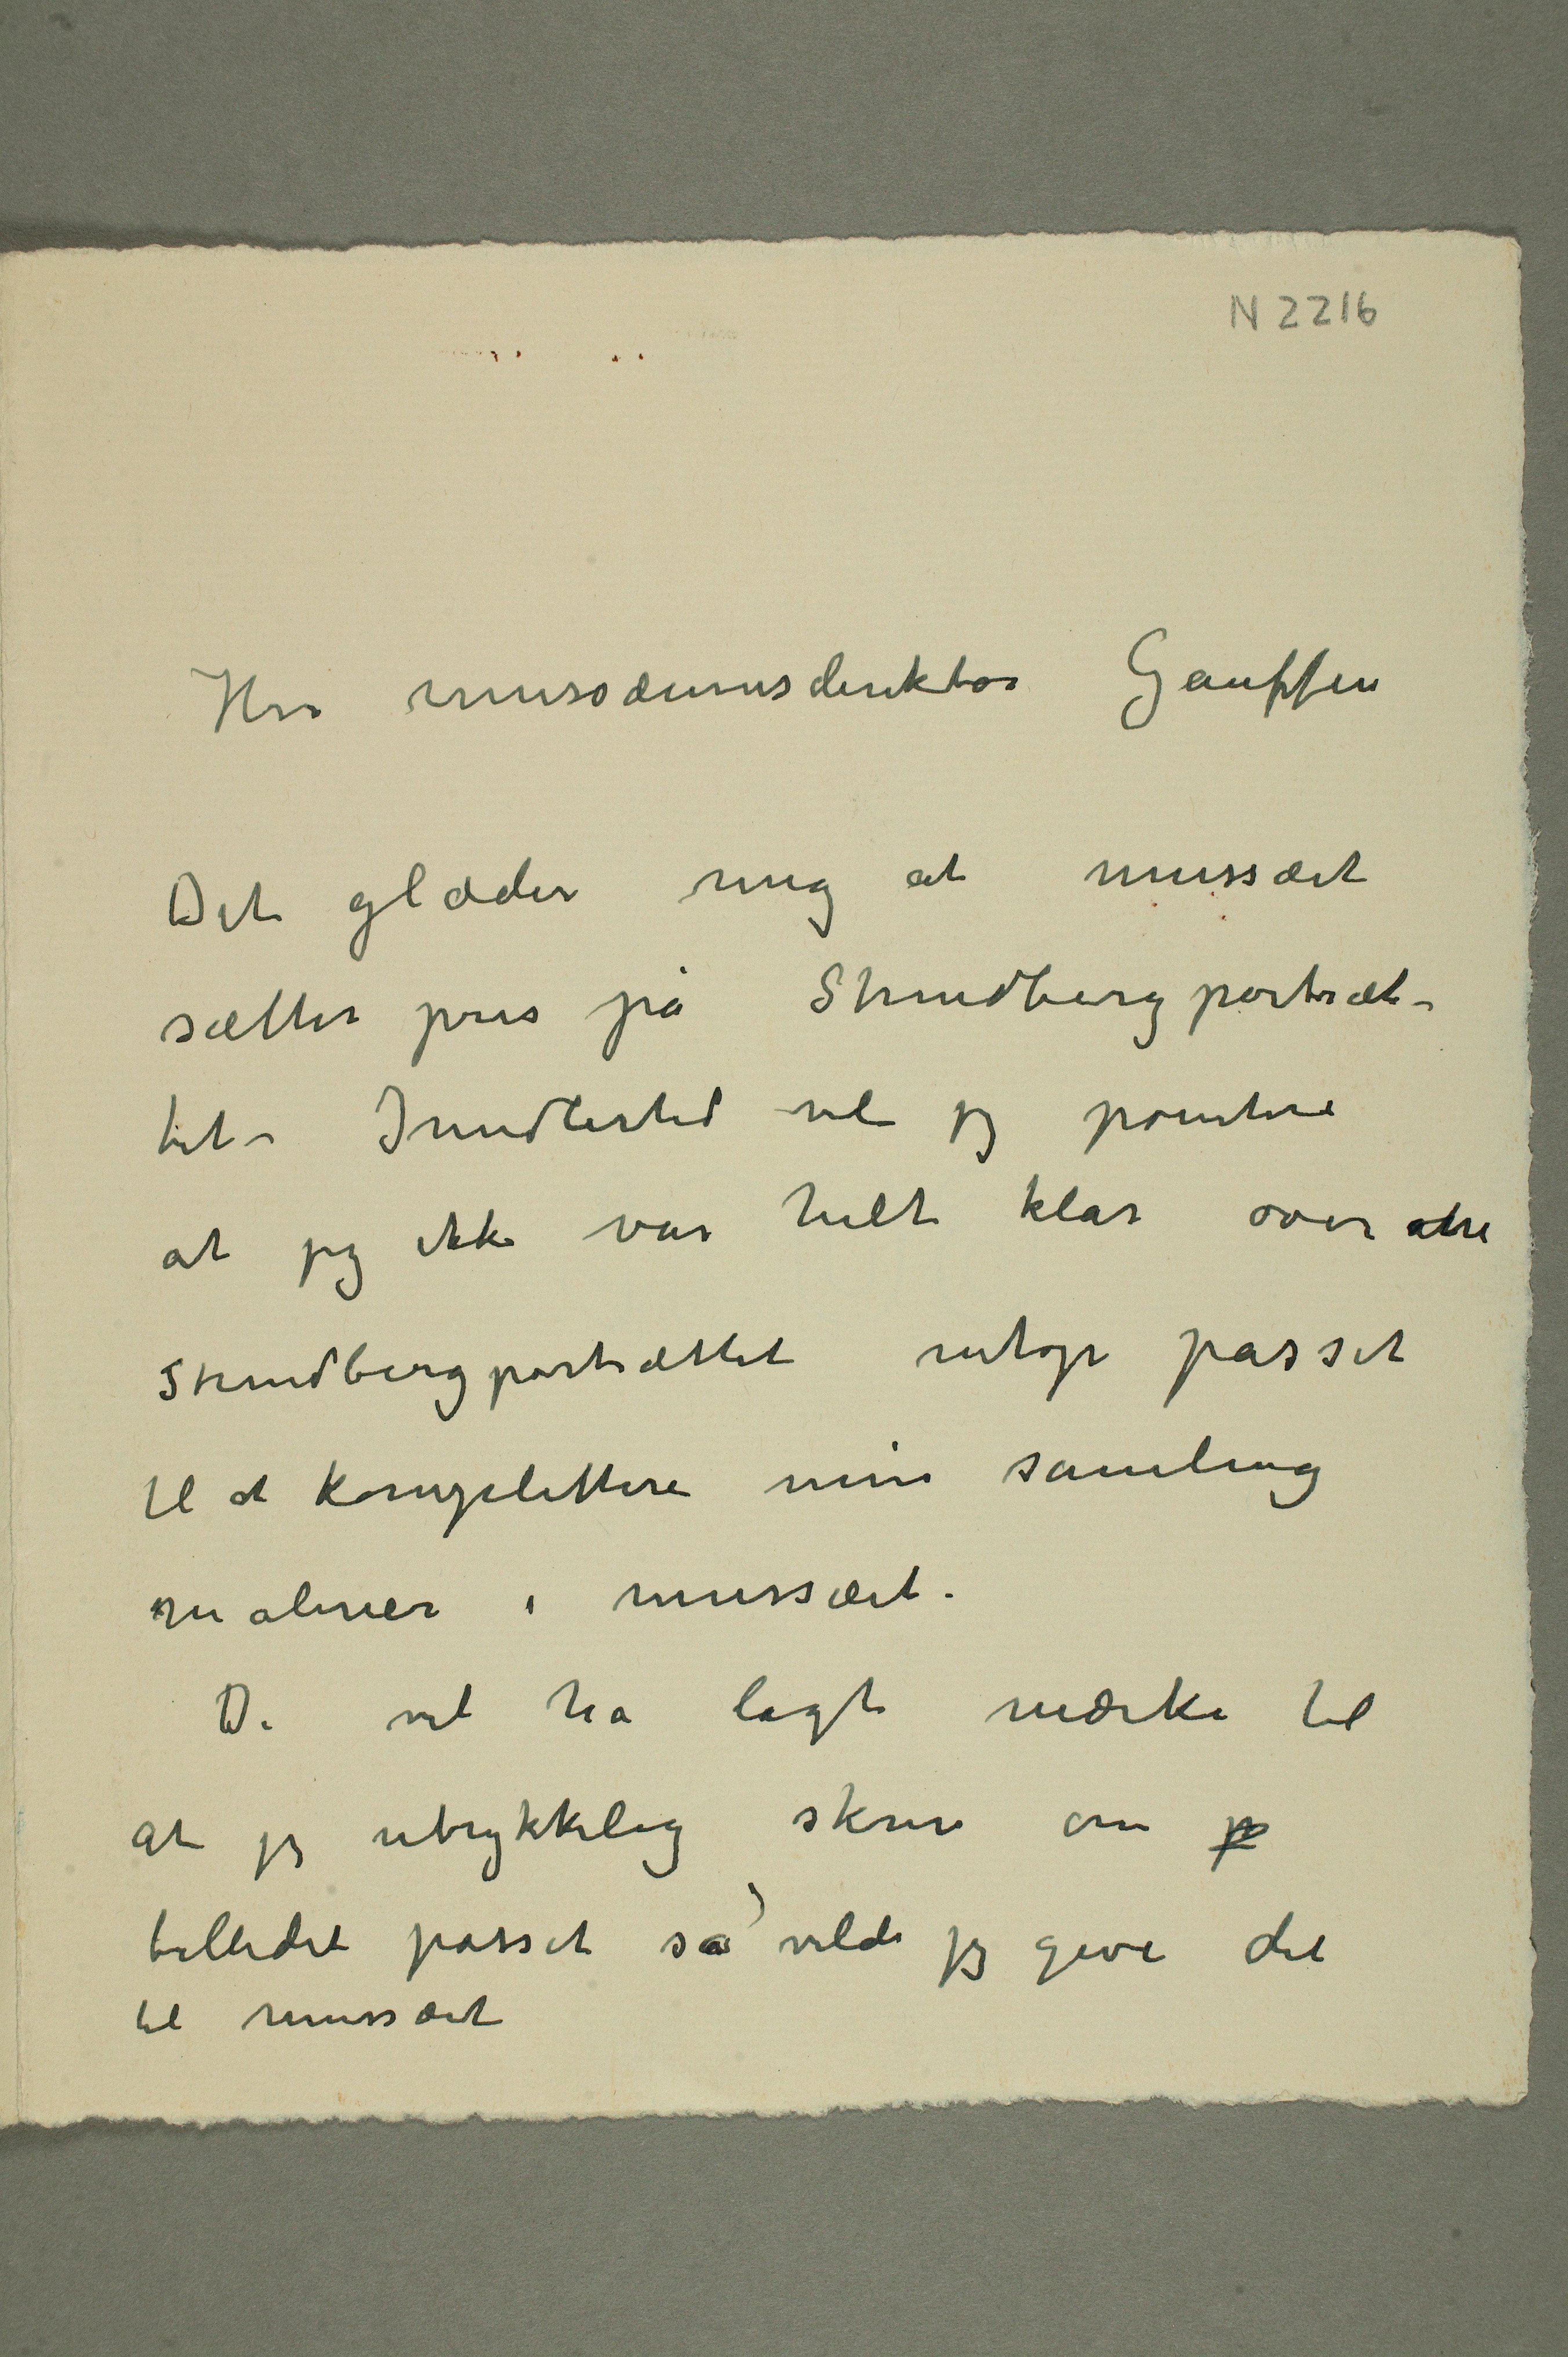 N 2216
Herr mussæumsdirektør Gauffin
Det glæder mig at mussæet
sætter pris på Strindbergportræt-
tet – Imidlertid vil jeg pointere
at jeg ikke var helt klar over
Strindbergportrættet netop passet
til at komplettere min samling
malerier i mussæet.
De vil ha lagt mærke til
at jeg utrykkelig skrev om
billedet passet så vilde jeg give det
til mussæet